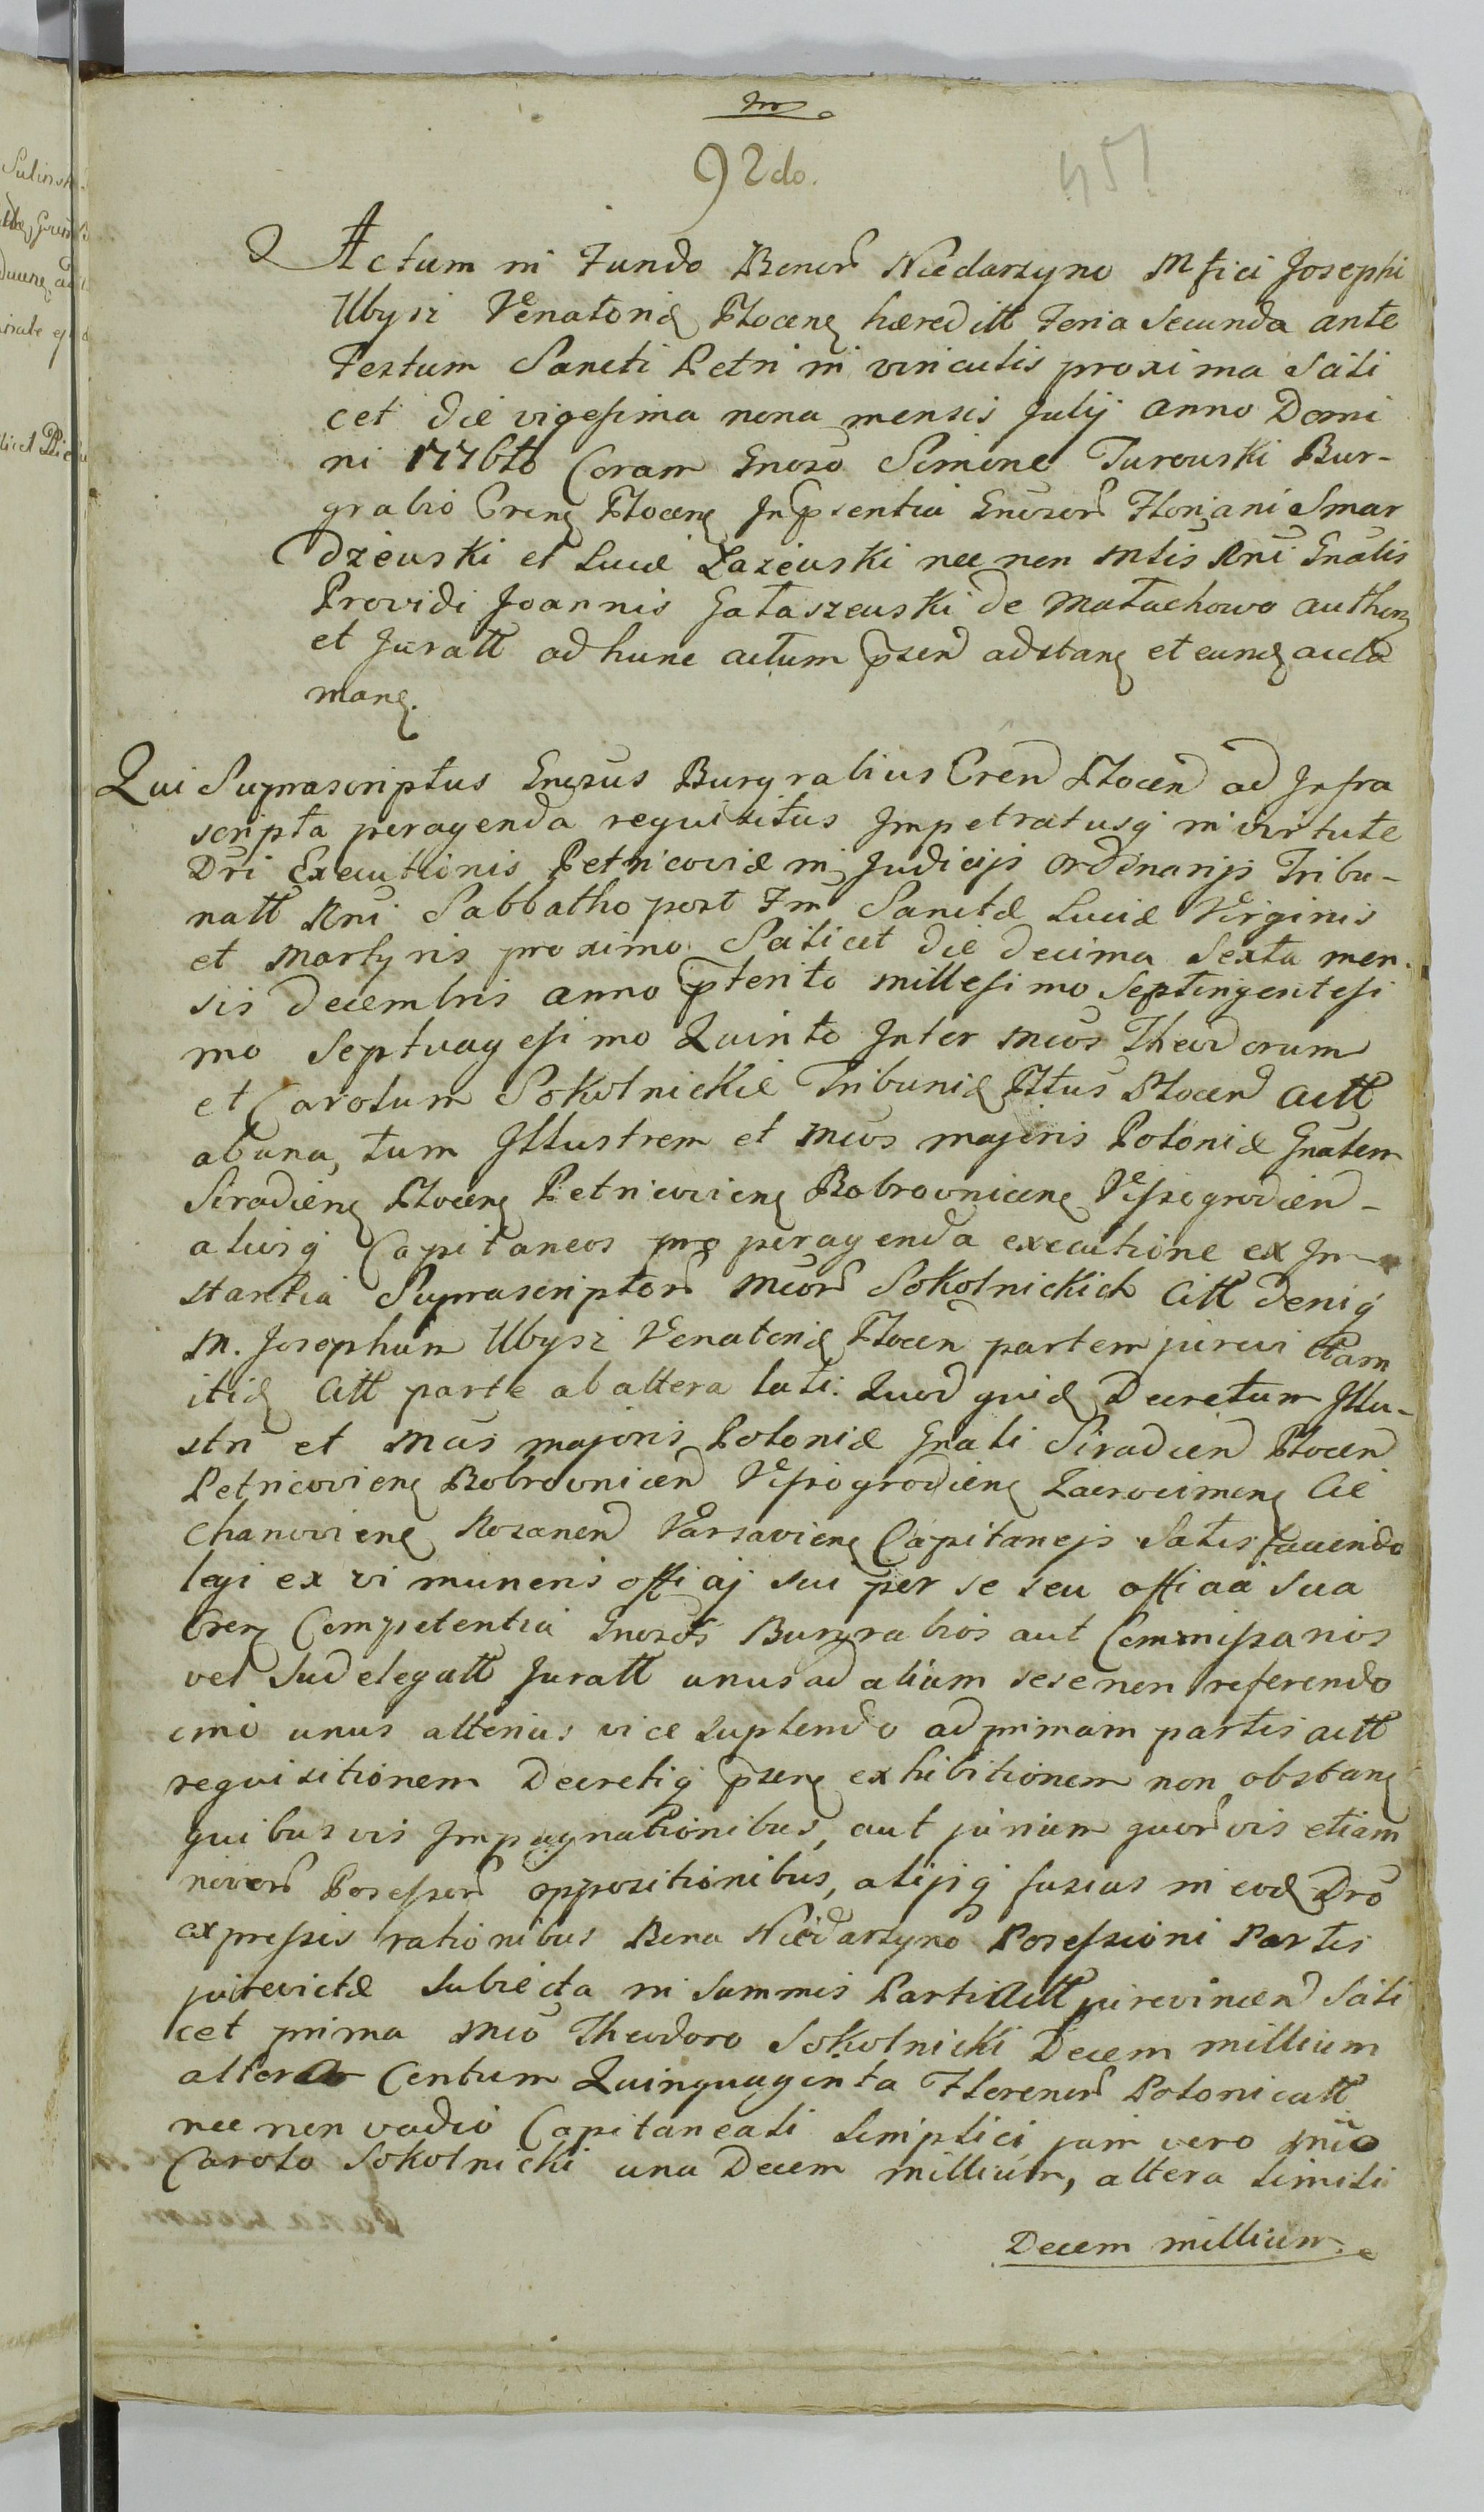 92do.
451
Actum in Fundo Bonorũ Niedarzyno Mfici Josephi
Ubysz Venatoridę Plocenę hæreditt Feria Secunda ante
Festum Sancti Petri in vinculis proxima Scili
cet die vigesima nona mensis Julij anno Domi
ni 1776to Coram Gnoso Simone Turowski Bur-
grabio Crenę Plocenę In p̃sentia Gnosorũ Floriani Smar
dzewski et Lucæ Łazewski nec non Mlis Rni Gnalis
Providi Joannis Gałaszewski de Małachowo authen
et Juratt ad hunc actum p̃sen adstanę et eundę accla
manę.
Qui Suprascriptus Gnosus Burgrabius Cren Plocen ad Infra
scripta peragenda requisitus Impetratusq in virtute
Dri Executionis Petricoviæ in Judicijs Ordinarijs Tribu-
natt Rni Sabbatho post Fm Sanctæ Luciæ Virginis
et Martyris proximo Scilicet die decima Sexta men-
sis decembris anno p̃terito millesimo Septingentesi
mo Septuagesimo Quinto Inter Mcos Theodorum
et Carolum Sokolnickie Tribunidę Pltus Plocen actt
ab una, tum Illustrem et Mcos majoris Poloniæ Gnalem
Siradienę Plocenę Petricovienę Bobrovnicenę Vissogrodien-
aliosq Capitaneos pro peragenda executione ex In-
stantia Suprascriptorũ Mcorũ Sokolnickich Citt deniq
M. Josephum Ubysz Venatoridę Plocen partem jurevictam
itidę Citt parte ab altera lati. Quod quidę Decretum Illu-
stri et Mcis majoris Poloniæ Gnali Siradien Plocen
Petricovienę Bobrovnicen Vissogrodienę Zacrocimenę Cie
chanovienę Rozanen Varsavienę Capitaneis Satisfaciendo
legi ex vi muneris officij sui per se seu officia sua
Cren Competentia Gnosos Burgrabios aut Commissarios
vel Sudelegatt Juratt unus ad alium sese non referendo
imo unus alterius vice suplendo ad primam partis actt
requisitionem Decretiq p̃senę exhibitionem non obstanę
quibusvis Impugnationibus, aut jurium quorũvis etiam
novorũ Possessorũ oppositionibus, alijsq fusius in eodę Dro
expressis rationibus Bona Niedarzyno Possessioni Partis
jurevictæ Subiecta in Summis Parti Actt jurevincen Scili
cet prima Mco Theodoro Sokolnicki Decem millium
altera Centum Quinquaginta Florenorũ Polonicatt
nec non vadio Capitaneali Simplici jam vero Mco
Carolo Sokolnicki una Decem millium, altera simili
Decem millium